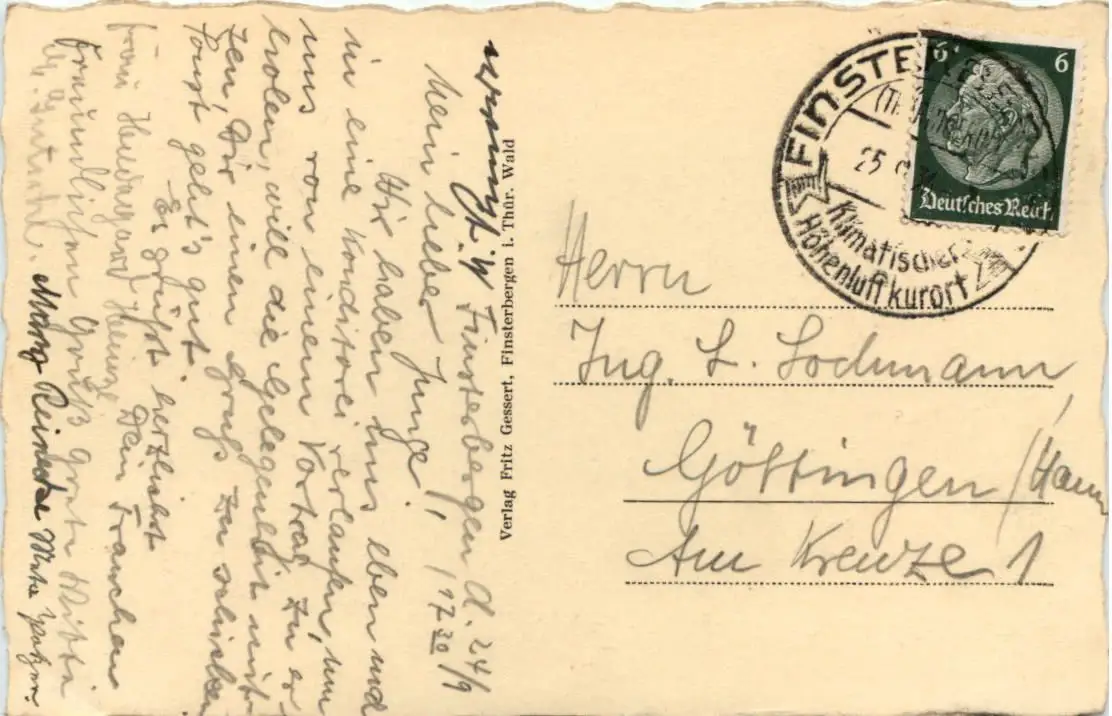 vermißt.!!
Finsterbergen d. 24/9
Mein lieber Junge! 17 30
Wir haben uns eben und
in eine Konditorei verlaufen, um
uns von einem Vortrag zu er
holen, will die Gelegenheit nut
zen, Dir einen Gruß zu schicken
sonst geht's gut.
Es grüßt herzlichst
Dein Frauchen
Frau Hildegard Heinze
Freundlichen Gruß Grete Witte
Mary Reinicke
Verlag Fritz Gessert, Finsterbergen i. Thür. Wald
FINSTERBERGEN
25
Klimatischer
Höhenluftkurort
6 6
Deutsches Reich
Herrn
Ing. L. Lochmann
Göttingen /Hann
Am Kreuze 1